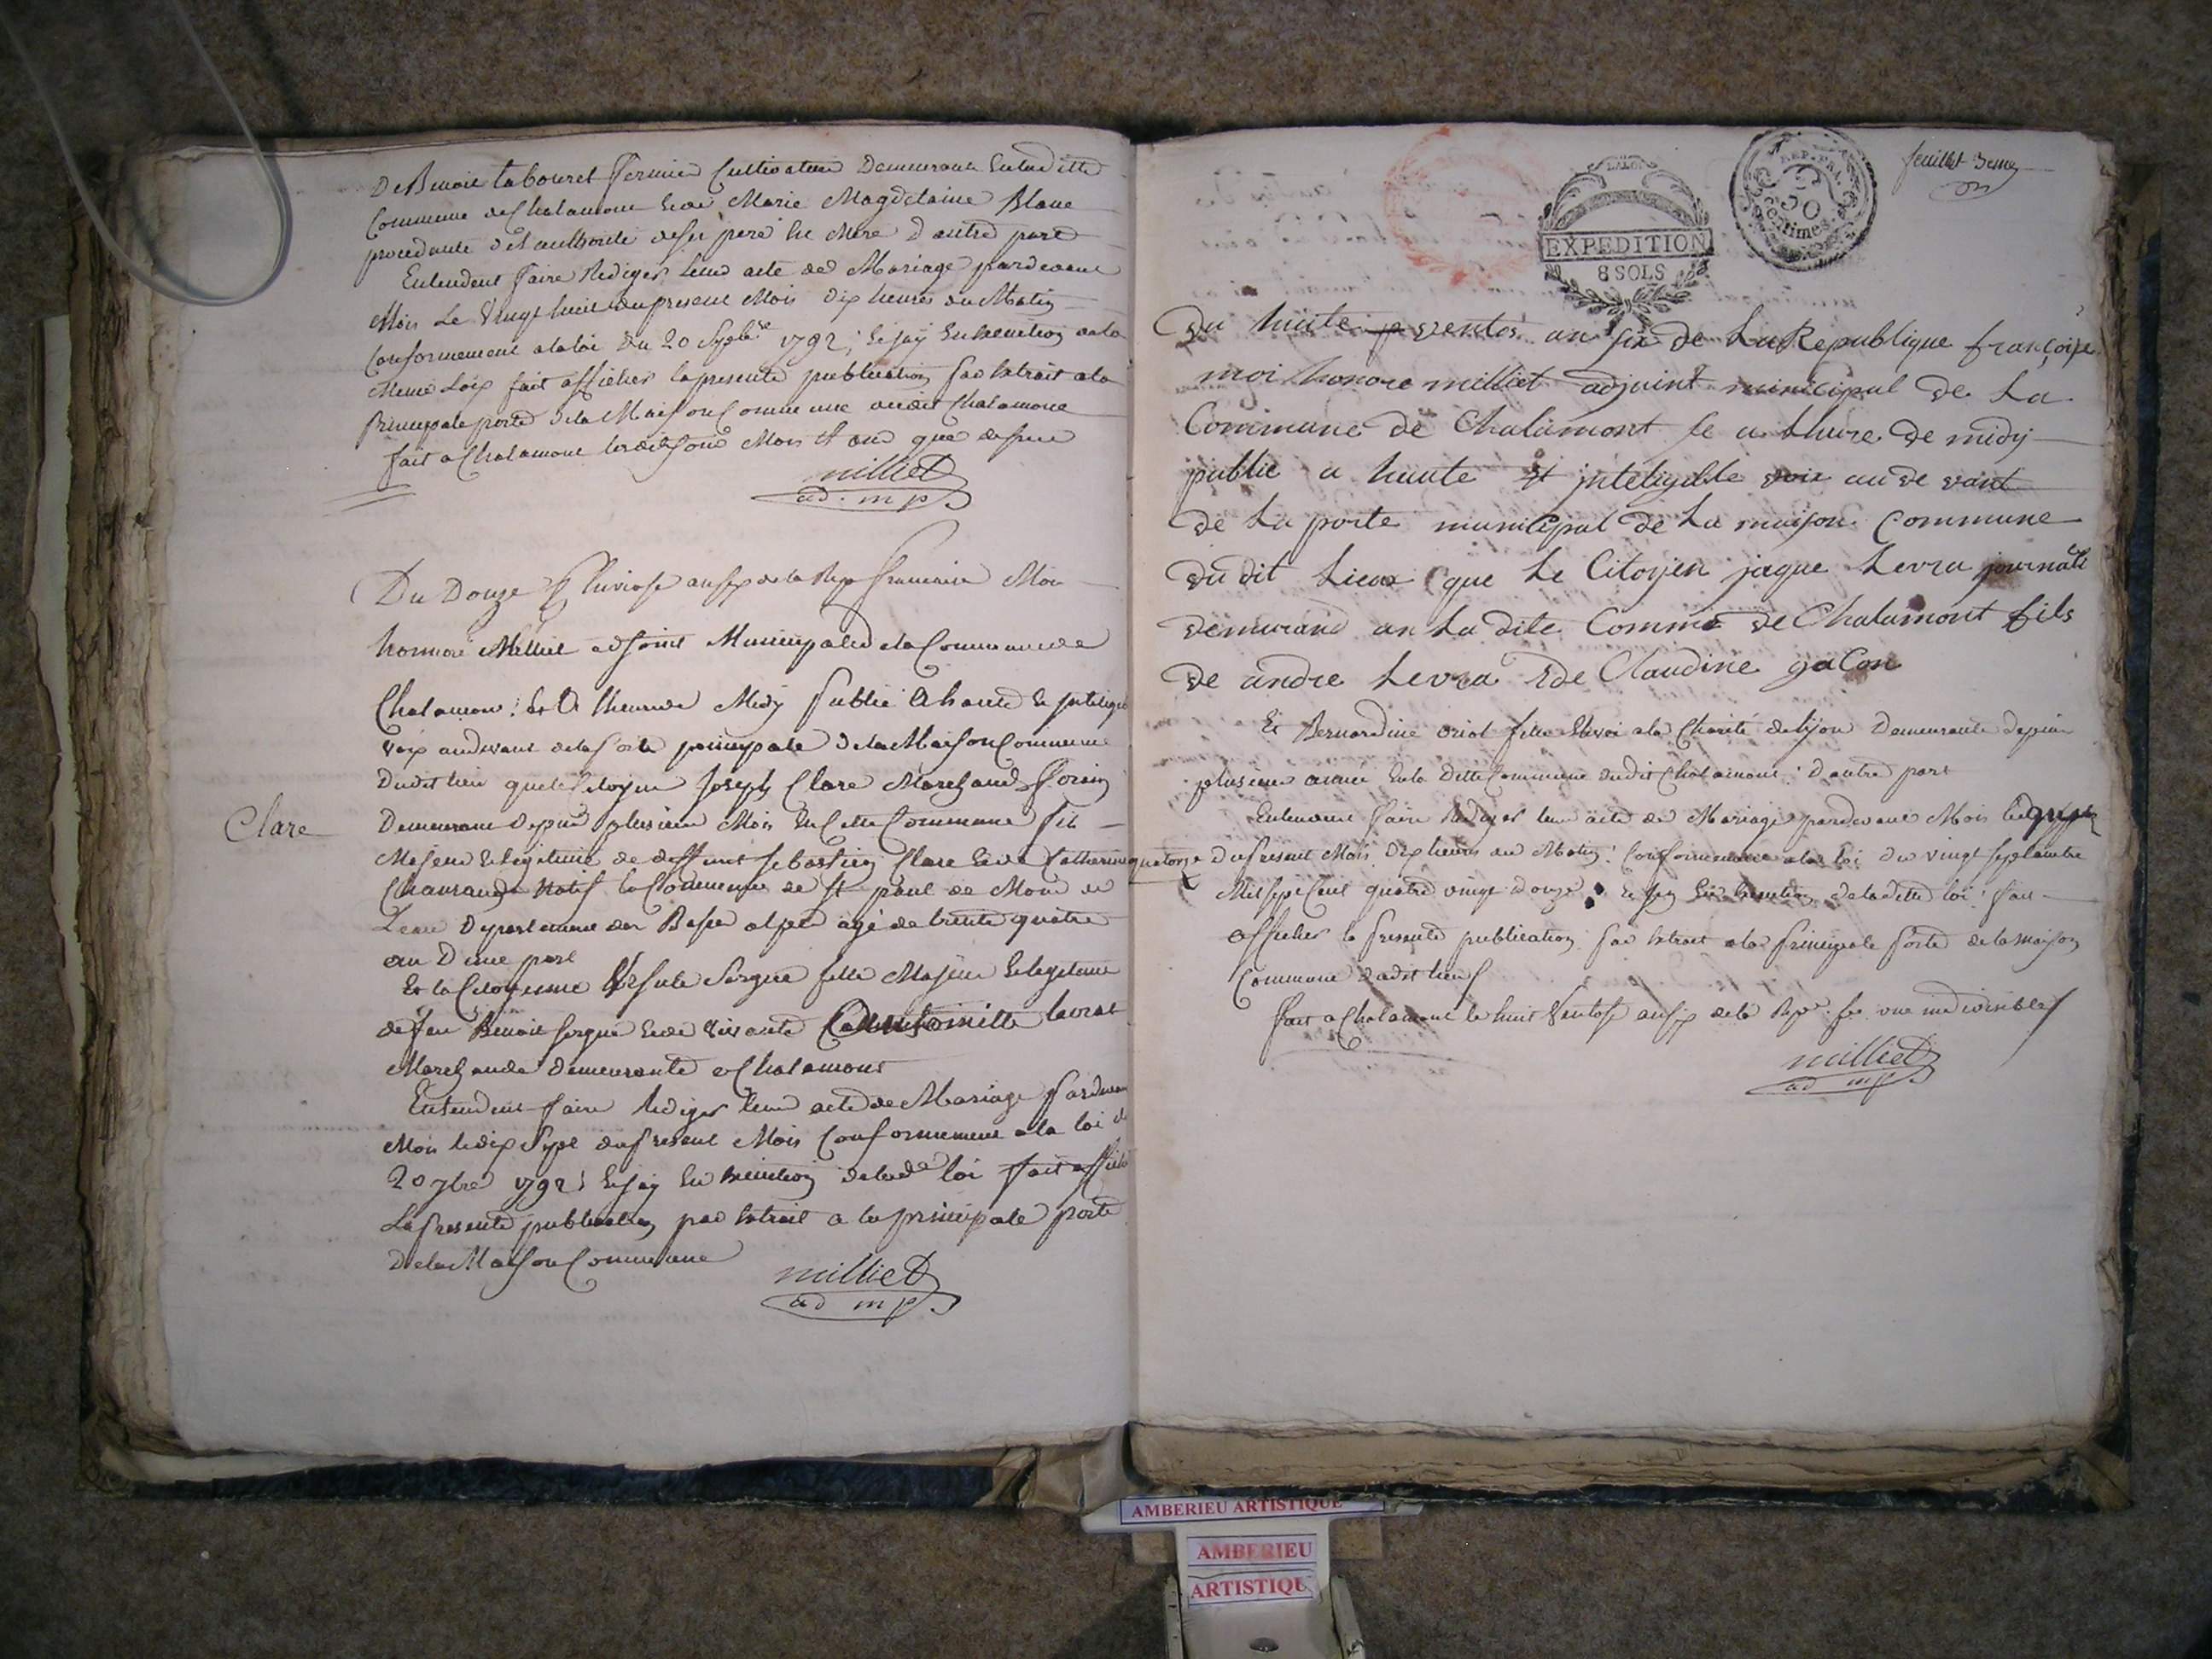 De Benoit tabouret fermier Cultivateur Demeurant En la ditte
Commune de Chalamont & de Marie Magdelaine Blanc
procedante de l'authorité de ses pere Et Mere d'autre part
Entendent faire Rediger leur acte de Mariage pardevant
Mois Le Vingt huit du present Mois dix heures du Matin
Conformement a la loi du 20 Septbre 1792, & jay En execution de la
Meme Loix fait afficher la presente publication par Extrait a la
Principale porte de la Maison Commune dudit Chalamont
fait a Chalamont les dits jour Mois Et an que dessus
milliet
ad. m p.
Du Douze Pluviose an six de la Rep francaise Moi
honnoré Milliet adjoint Municipal de la Commune de
Chalamont. Et A lheure de Midy Publié A haute & jnteligi
voix audevant de la Porte principale de la Maison Commune
Dudit lieu que le Citoyen Joseph Clare Marchand forain
Demeurant Depuis plusieur Mois En Cette Commune fils
Clare
Majeur & legitime de deffunt sebastien Clare & de Catherine
Chauraud Natif la Commune de St paul de
Departement des Basse alpes agé de trente quatre
an D'une part
Et la Citoyenne Ursule Sorgue fille Majeur & legitime
de feu Benoit sorgue & de vivante lavrat
Marchande demeurante a Chalamont
Entendent faire Rediger leur acte de Mariage Pardevan
Mois le dix Sept du present Mois Conformement a la loi d
20 7bre 1792; & jay En execution de lade loi fait affiche
La presente publication par Extrait a la principale porte
De la Maison Commune
milliet
ad m p.
LA LOI
EXPEDITION
8 SOLS
REP. FRA.
50
Centimes
feuillet 3eme
Du huite ventos an six de La Republique françoise
moi honore milliet adjoint municipal de La
Commune de Chalamont se a Lhure de midy
publie a haute Et jnteligible voie au de vant
de La porte municipal de La maison Commune
du dit Lieux que Le Citoyen jaque Levra journali
demurand an La dite Comme de Chalamont fils
de andre Levra & de Claudine gacon
Et Bernardine oriol fille a la Charité de lyon Demeurante depuis
plusieur année En la Ditte Commune dudit Chalamont d'autre part
Entendent Faire Rediger leur acte de Mariage pardevant Mois le
quatorze du Present Mois dix heures du Matin: Conformement a la loi du vingt septembre
Mil sept Cent quatre vingt douze & jay En execution de la ditte loi fait
afficher la presente publication par Extrait a la Principale Porte de la Maison
Commune dudit lieu
fait a Chalamont le huit Ventose an six de la Rep. fse une indivisible
milliet
ad m p.
AMBERIEU ARTISTIQUE
AMBERIEU
ARTISTIQU